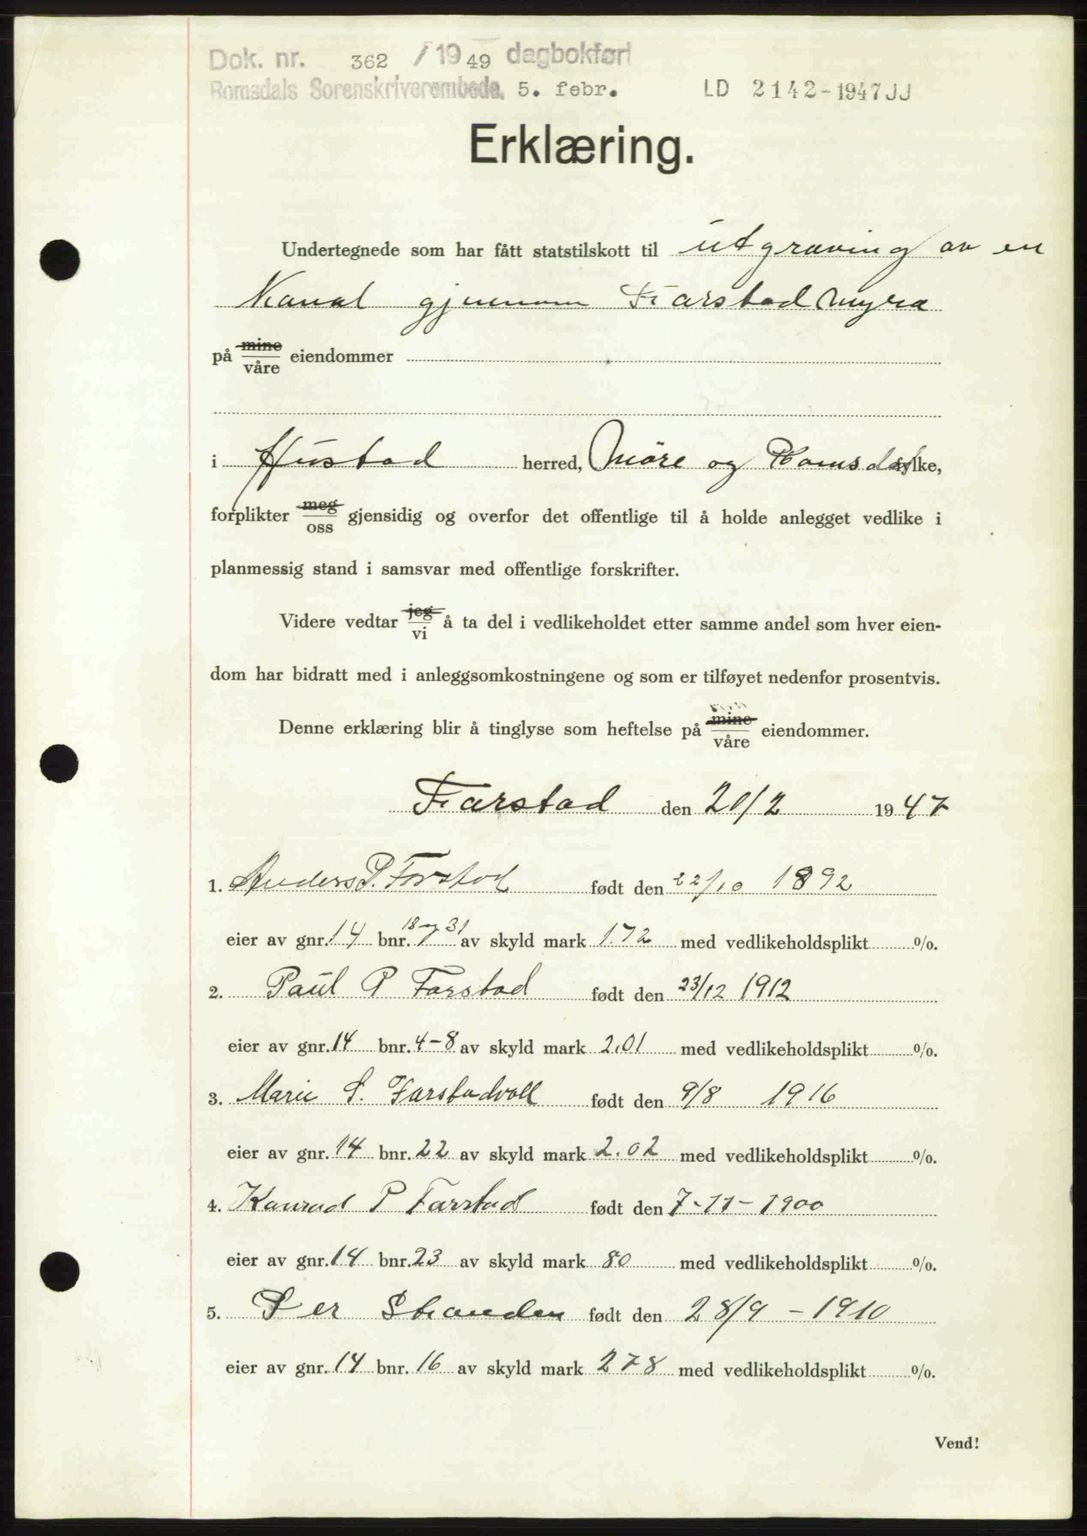 Dok. nr. 362 / 19 49 dagbokført
Romsdals Sorenskriverembede, 5. febr. LD 2142-1947 JJ
Erklæring.
Undertegnede som har fått statstilskott til utgraving av en
Kanal gjennom Farstadmyra
på mine/våre eiendommer
i Hustad herred, Møre og Romsdal fylke,
forplikter meg/oss gjensidig og overfor det offentlige til å holde anlegget vedlike i
planmessig stand i samsvar med offentlige forskrifter.
Videre vedtar jeg/vi å ta del i vedlikeholdet etter samme andel som hver eien-
dom har bidratt med i anleggsomkostningene og som er tilføyet nedenfor prosentvis.
Denne erklæring blir å tinglyse som heftelse på mine/våre eiendommer.
Farstad den 20/2 1947
1. Anders P. Farstad født den 22/10 1892
eier av gnr. 14 bnr. 18 og 31 av skyld mark 1.72 med vedlikeholdsplikt %.
2. Paul P Farstad født den 23/12 1912
eier av gnr. 14 bnr. 4-8 av skyld mark 2.01 med vedlikeholdsplikt %.
3. Marie S. Farstadvoll født den 9/8 1916
eier av gnr. 14 bnr. 22 av skyld mark 2.02 med vedlikeholdsplikt %.
4. Konrad P Farstad født den 7-11-1900
eier av gnr. 14 bnr. 23 av skyld mark 80 med vedlikeholdsplikt %.
5. Per Stranden født den 28/9 - 1910
eier av gnr. 14 bnr. 16 av skyld mark 278 med vedlikeholdsplikt %.
Vend!